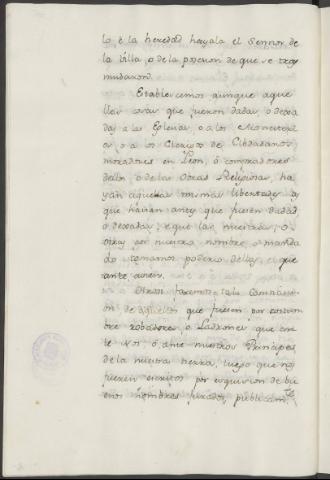 lo è la heredad hayala el Sennor de
la Villa, o de la posesion de que se trans
mudaron.
Establecemos aunque aque
llas cosas que fueron dadas, o dexa
das a las Eglesias, o a los Monesteri
os, o a los Clerigos de Cibdadanos
moradores en Leon, ó compradores
dello, o de las Casas Religiosas, ha
yan aquellas mismas libertades
que havian antes que fuesen dadas
o dexadas, e que las nuestras, o
otras por nuestro nombre, o manda
do tomamos poderio dellas, e que
ante avien.
Otrosi facemos tal Constitucion
de aquellos que fueren por costum
bre robadores, o Ladrones que an
te Nos ó ante nuestros Principes
de la nuestra tierra, luego que
fueren escritos por esquision de bu
enos hombres jurados, publicam.te